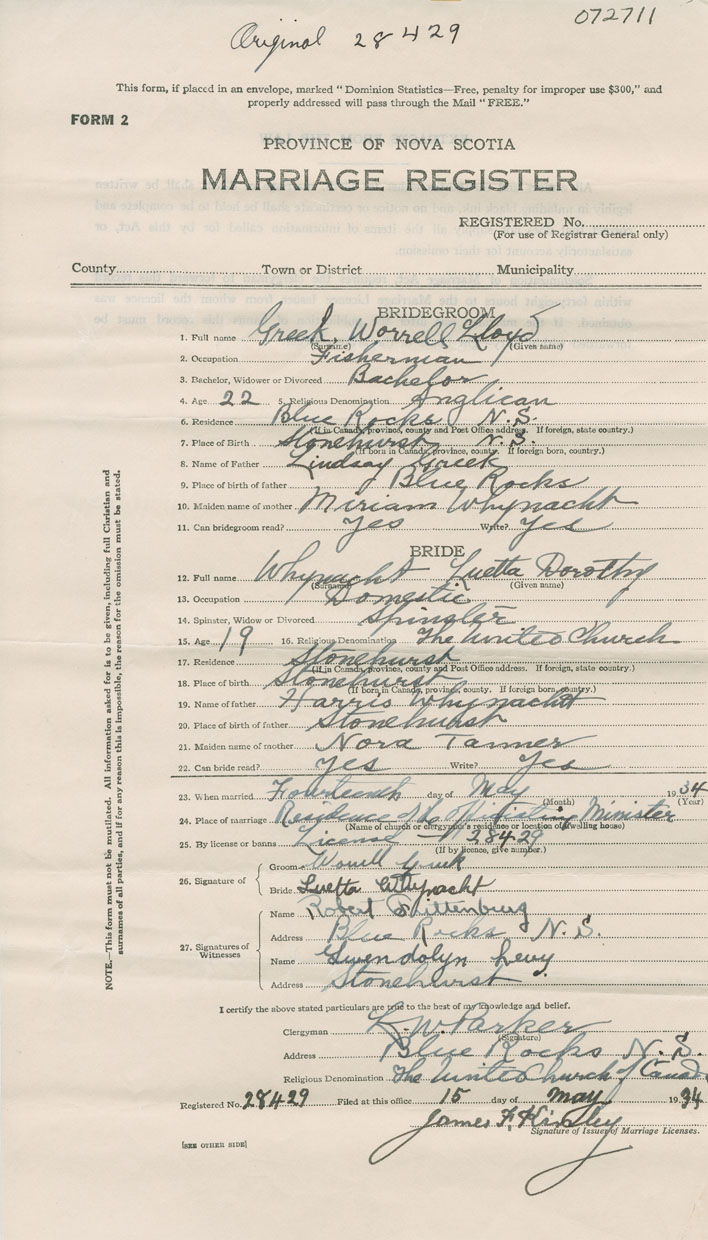 Original 28429
072711
This form, if placed in an envelope, marked "Dominion Statistics—Free, penalty for improper use $300," and
properly addressed will pass through the Mail "FREE."
FORM 2
PROVINCE OF NOVA SCOTIA
MARRIAGE REGISTER
REGISTERED No.
(For use of Registrar General only)
County Town or District Municipality
BRIDEGROOM
1. Full name Greek, Worrell Lloyd
(Surname) (Given name)
2. Occupation Fisherman
3. Bachelor, Widower or Divorced Bachelor
4. Age 22 5. Religious Denomination Anglican
6. Residence Blue Rocks N.S.
(If in Canada, province, county and Post Office address. If foreign, state country.)
7. Place of Birth Stonehurst N.S.
(If born in Canada, province, county. If foreign born, country.)
8. Name of Father Lindsay Greek
9. Place of birth of father Blue Rocks
10. Maiden name of mother Miriam Whynacht
11. Can bridegroom read? Yes Write? Yes
BRIDE
12. Full name Whynacht Luetta Dorothy
(Surname) (Given name)
13. Occupation Domestic
14. Spinster, Widow or Divorced Spinster
15. Age 19 16. Religious Denomination The United Church
17. Residence Stonehurst
(If in Canada, province, county and Post Office address. If foreign, state country.)
18. Place of birth Stonehurst
(If born in Canada, province, county. If foreign born, country.)
19. Name of father Harris Whynacht
20. Place of birth of father Stonehurst
21. Maiden name of mother Nora Tanner
22. Can bride read? Yes Write? Yes
23. When married Fourteenth day of May 1934
(Month) (Year)
24. Place of marriage Residence of the Officiating Minister
(Name of church or clergyman's residence or location of dwelling house)
25. By license or banns License — 28429
(If by licence, give number.)
26. Signature of
Groom Worrell Greek
Bride Luetta Whynacht
27. Signatures of Witnesses
Name Robert
Address Blue Rocks N.S.
Name Gwendolyn Levy
Address Stonehurst
I certify the above stated particulars are true to the best of my knowledge and belief.
Clergyman L. W. Parker
(Signature)
Address Blue Rocks N.S.
Religious Denomination The United Church of Canada
Registered No. 28429 Filed at this office 15 day of May 1934
James F. Hinsley
Signature of Issuer of Marriage Licenses.
[SEE OTHER SIDE]
NOTE.—This form must not be mutilated. All information asked for is to be given, including full Christian and
surnames of all parties, and if for any reason this is impossible, the reason for the omission must be stated.